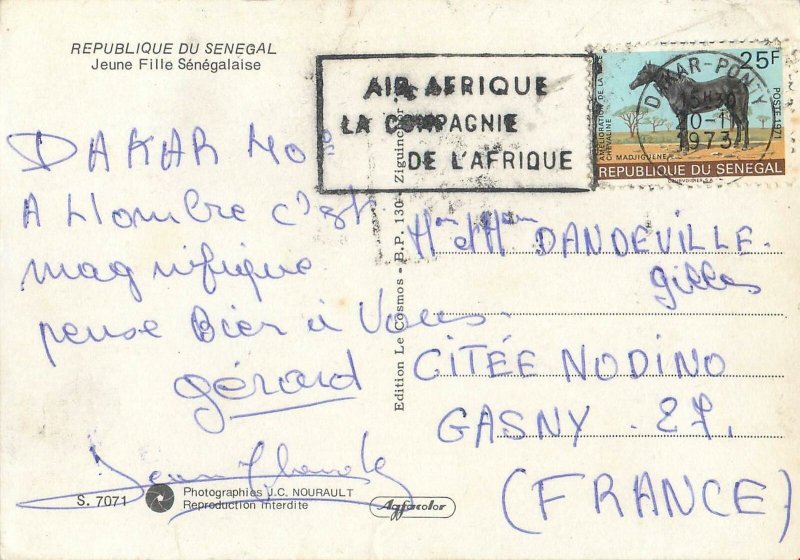 REPUBLIQUE DU SENEGAL
Jeune Fille Sénégalaise
AIR AFRIQUE
LA COMPAGNIE
DE L'AFRIQUE
25F
POSTE 1971
AMÉLIORATION DE LA
CHEVALINE
MADJIGUENE
REPUBLIQUE DU SENEGAL
DAKAR-PONTY
1973
DAKAR 40°
A L'ombre c'est
magnifique
pense Bien à Vous.
gérard
Edition Le Cosmos - B.P. 130 - Ziguinchor
DANDEVILLE.
gilles
CITÉE NODINO
GASNY. 27.
(FRANCE)
S. 7071
Photographies J.C. NOURAULT
Reproduction interdite
Agfacolor